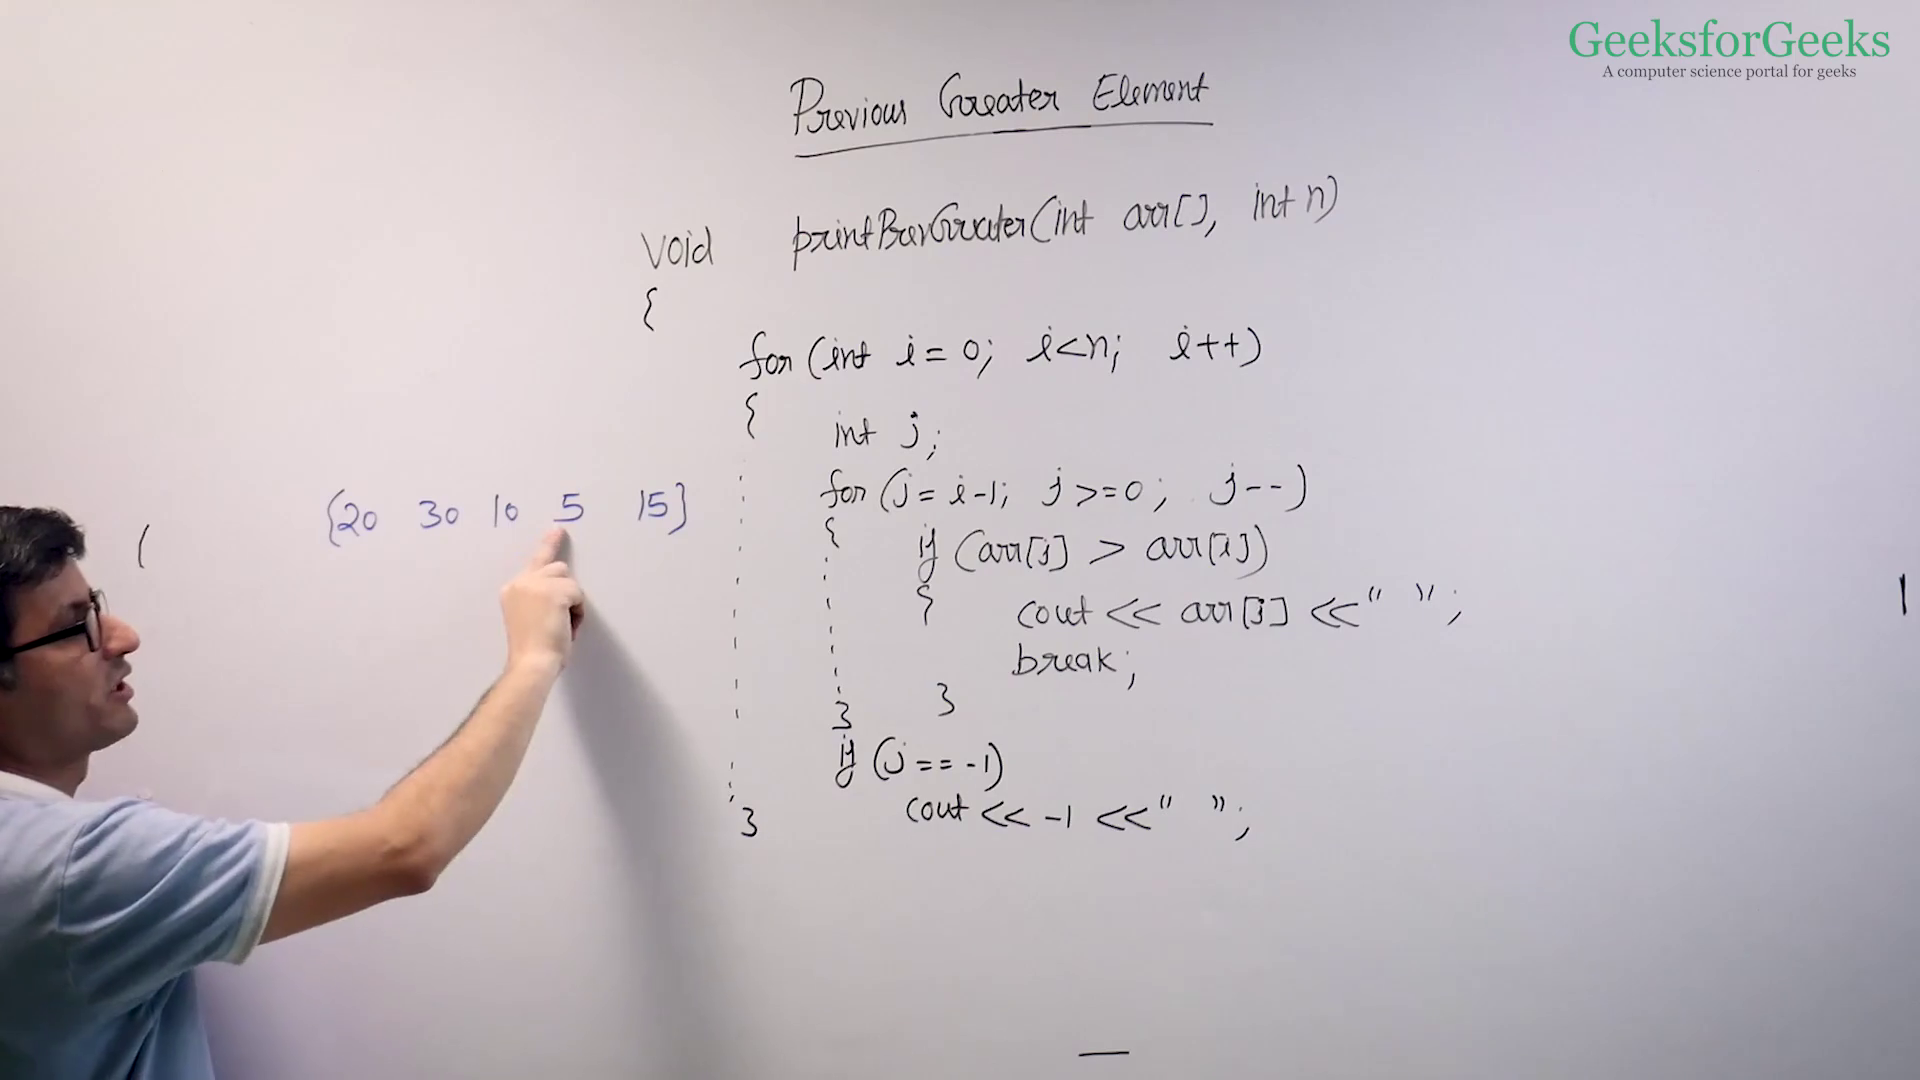 GeeksforGeeks
A computer science portal for geeks
Previous Greater Element
void printPrevGreater(int arr[], int n)
{
for (int i = 0; i<n; i++)
{
int j;
for (j = i-1; j >= 0; j--)
{
if (arr[j] > arr[i])
{
cout << arr[j] << " ";
break;
}
}
if (j == -1)
cout << -1 << " ";
}
{20 30 10 5 15}